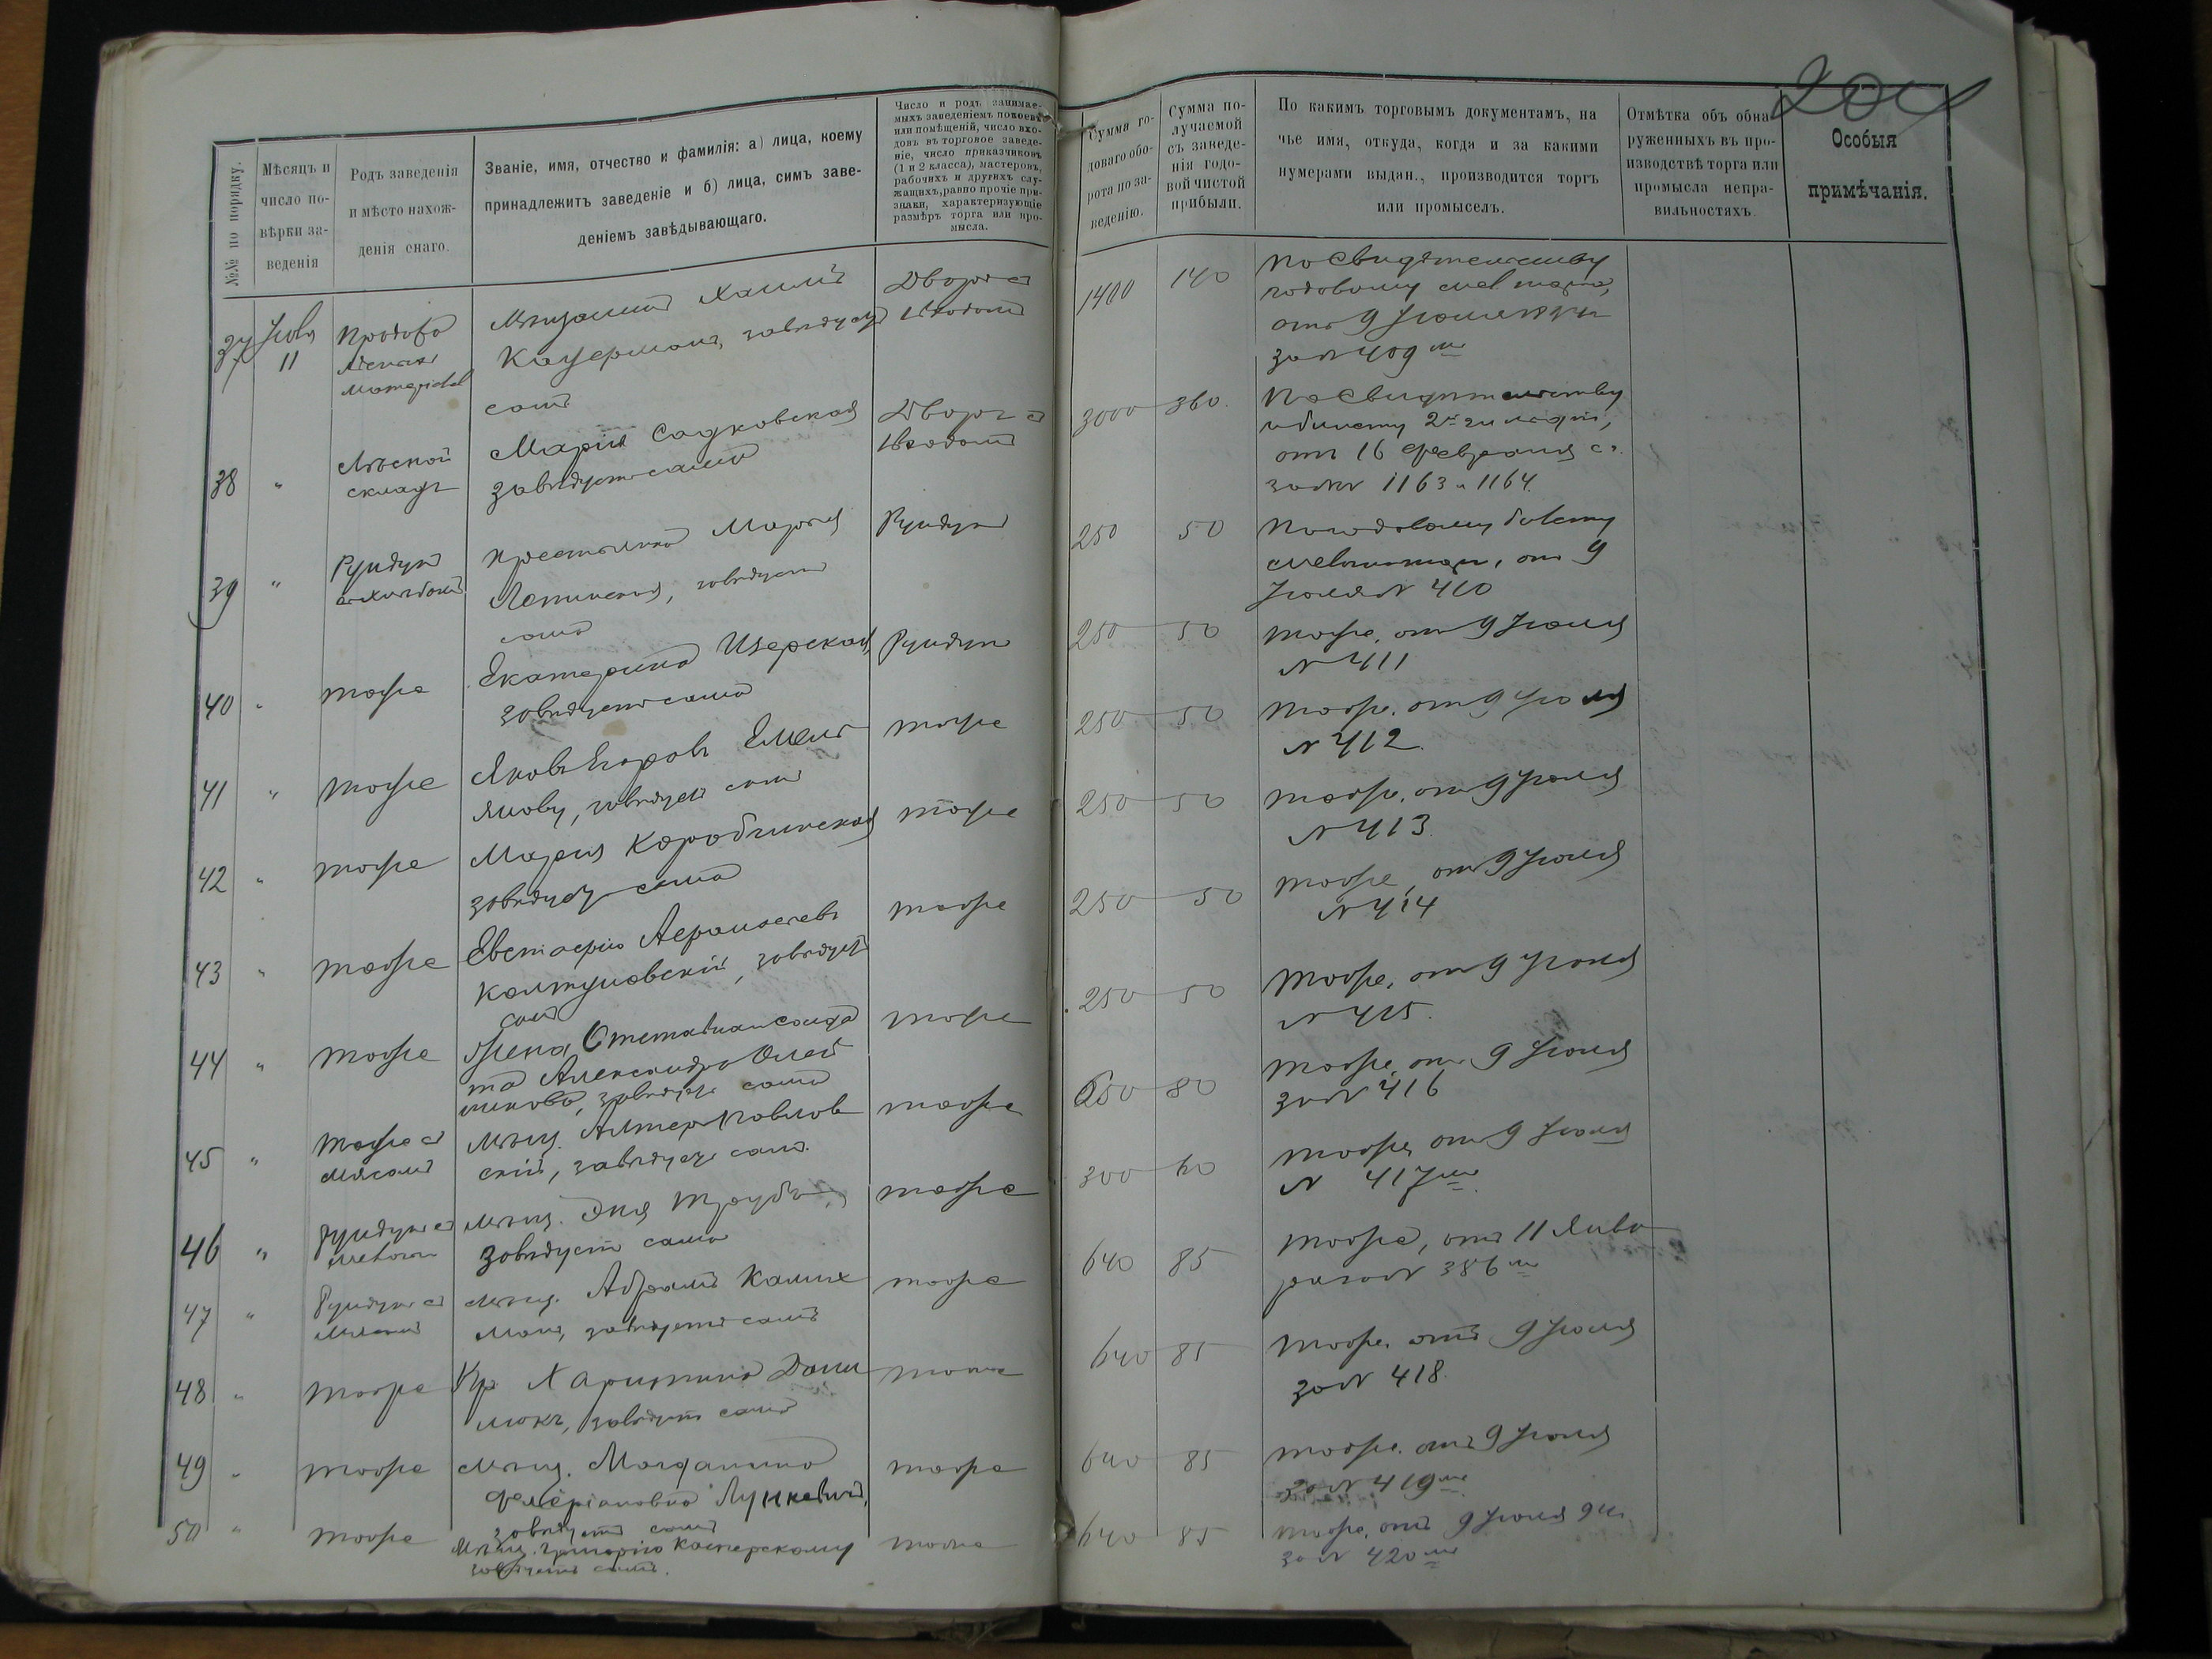 204
№№ по порядку.
Мѣсяцъ и
число по-
вѣрки за-
веденія
Родъ заведенія
и мѣсто нахож-
денія онаго.
Званіе, имя, отчество и фамилія: а) лица, коему
принадлежитъ заведеніе и б) лица, симъ заве-
деніемъ завѣдывающаго.
Число и родъ занимае-
мыхъ заведеніемъ покоевъ
или помѣщеній, число вхо-
довъ въ торговое заведе-
ніе, число приказчиковъ
(1 и 2 класса), мастеровъ,
рабочихъ и другихъ слу-
жащихъ, равно прочіе при-
знаки, характеризующіе
размѣръ торга или про-
мысла.
Сумма го-
доваго обо-
рота по за-
веденію.
Сумма по-
лучаемой
съ заведе-
нія годо-
вой чистой
прибыли.
По какимъ торговымъ документамъ, на
чье имя, откуда, когда и за какими
нумерами выдан., производится торгъ
или промыселъ.
Отмѣтка объ обна-
руженныхъ въ про-
изводствѣ торга или
промысла непра-
вильностяхъ.
Особыя
примѣчанія.
37 Іюля 11
Мѣщанинъ Хаимъ
завѣдуетъ
самъ
Дворъ съ
1 входомъ
1400 140
По свидѣтельству
годовому
отъ 9 Іюля
за № 409
38 "
Лѣсной
складъ
Марія Садковская
завѣдуетъ сама
Дворъ съ
1 входомъ
3000 360
По свидѣтельству
и билету 2й гильдіи,
отъ 16 Февраля с.г.
за №№ 1163 и 1164.
39 "
Рундукъ
Крестьянка Марія
завѣдуетъ
сама
Рундукъ
250 50
По годовому билету
отъ 9
Іюля № 410
40 "
тоже
Екатерина Изерская,
завѣдуетъ сама
Рундукъ
250 50
тоже, отъ 9 Іюля
№ 411
41 "
тоже
Яковъ Егоровъ Емель
янову, завѣдуетъ самъ
тоже
250 50
тоже, отъ 9 Іюля
№ 412
42 "
тоже
Марія Коробчинская
завѣдуетъ сама
тоже
250 50
тоже, отъ 9 Іюля
№ 413
43 "
тоже
Евстафію
Колтуновскій, завѣдуетъ
самъ
тоже
250 50
тоже, отъ 9 Іюля
№ 414
44 "
тоже
Жена Отставнаго солда
та Александра Олей
никова, завѣдуетъ сама
тоже
250 50
тоже, отъ 9 Іюля
№ 415
45 "
тоже съ
мясомъ
мѣщ. Алтеръ Павлов
скій, завѣдуетъ самъ.
тоже
650 80
тоже, отъ 9 Іюля
за № 416
46 "
Рундукъ съ
мѣщ.
завѣдуетъ сама
тоже
300 60
тоже, отъ 9 Іюля
№ 417
47 "
Рундукъ съ
мясомъ
мѣщ. Абрамъ Калих
манъ, завѣдуетъ самъ
тоже
640 85
тоже, отъ 11 Янва
ря за № 386
48 "
тоже
Кр. Харитина Дани
люкъ, завѣдуетъ сама
тоже
640 85
тоже, отъ 9 Іюля
за № 418
49 "
тоже
мѣщ. Магдалина
Лункевичъ,
завѣдуетъ сама
тоже
640 85
тоже, отъ 9 Іюля
за № 419
50 "
тоже
мѣщ. Григорію Касперскому
завѣдуетъ самъ.
тоже
640 85
тоже, отъ 9 Іюля
за № 420